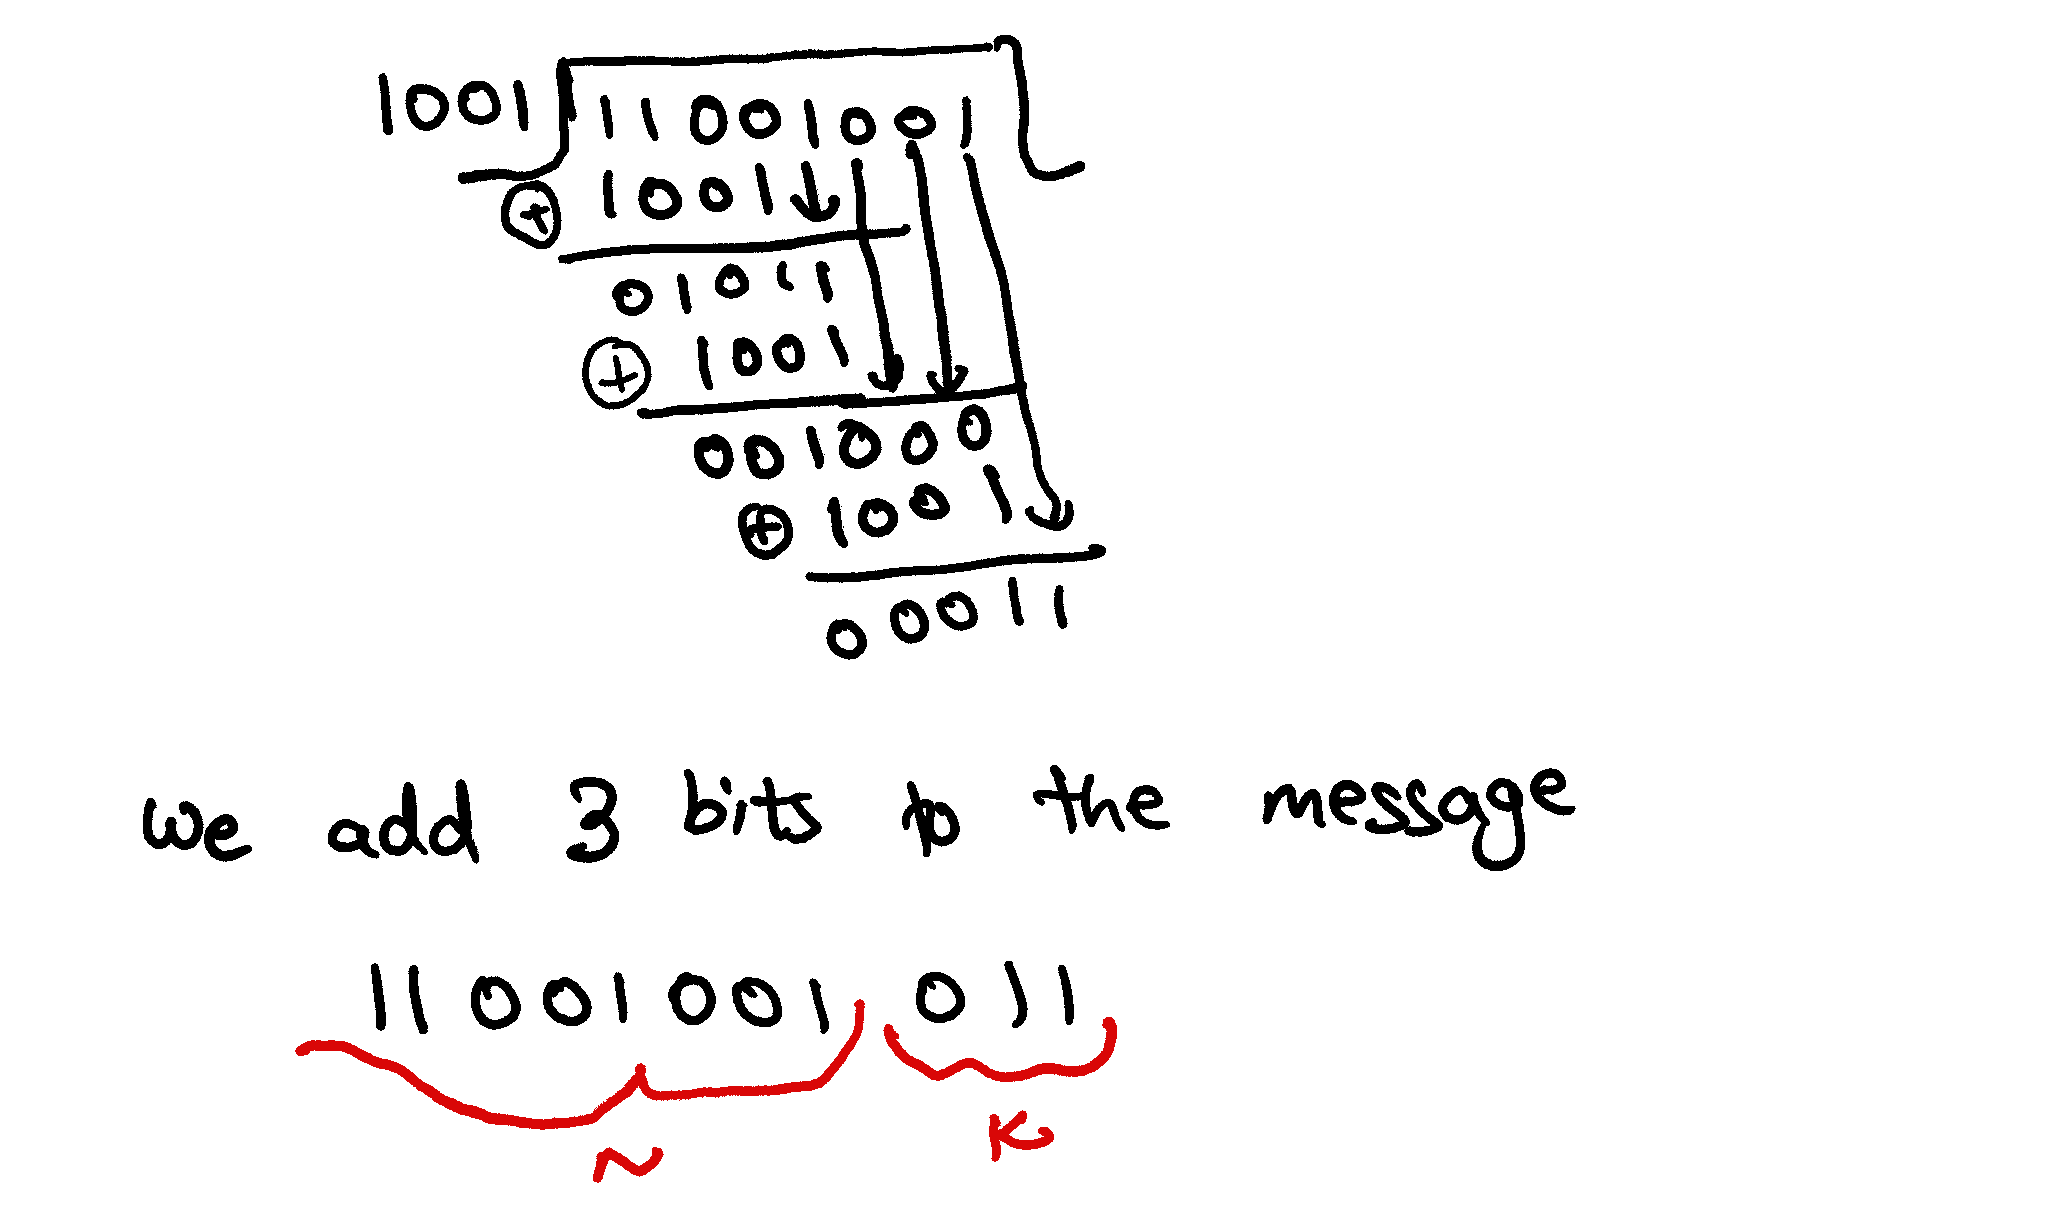 1001 11001001
⊕ 1001
01011
⊕ 1001
001000
⊕ 1001
00011
we add 3 bits to the message
11001001 011
n k